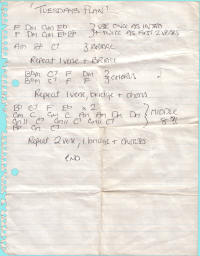 TUESDAYS PLAN!
F Dm Gm Eb } USE ONCE AS INTRO
F Dm Gm Eb Bb } + TWICE AS FIRST 2 VERSES
Am C7 } BRIDGE
Repeat 1 verse + BRIDGE
Bbm C7 F Dm } CHORUS
Bbm C7 F F
Repeat 1 verse, bridge + chorus
Bb C7 F Eb x 2 } MIDDLE
Gm C Gm C Am Am Dm Dm
Gm C7 C7 8
Bb Gm C7
Repeat 2 verse, 1 bridge + CHORUS
END